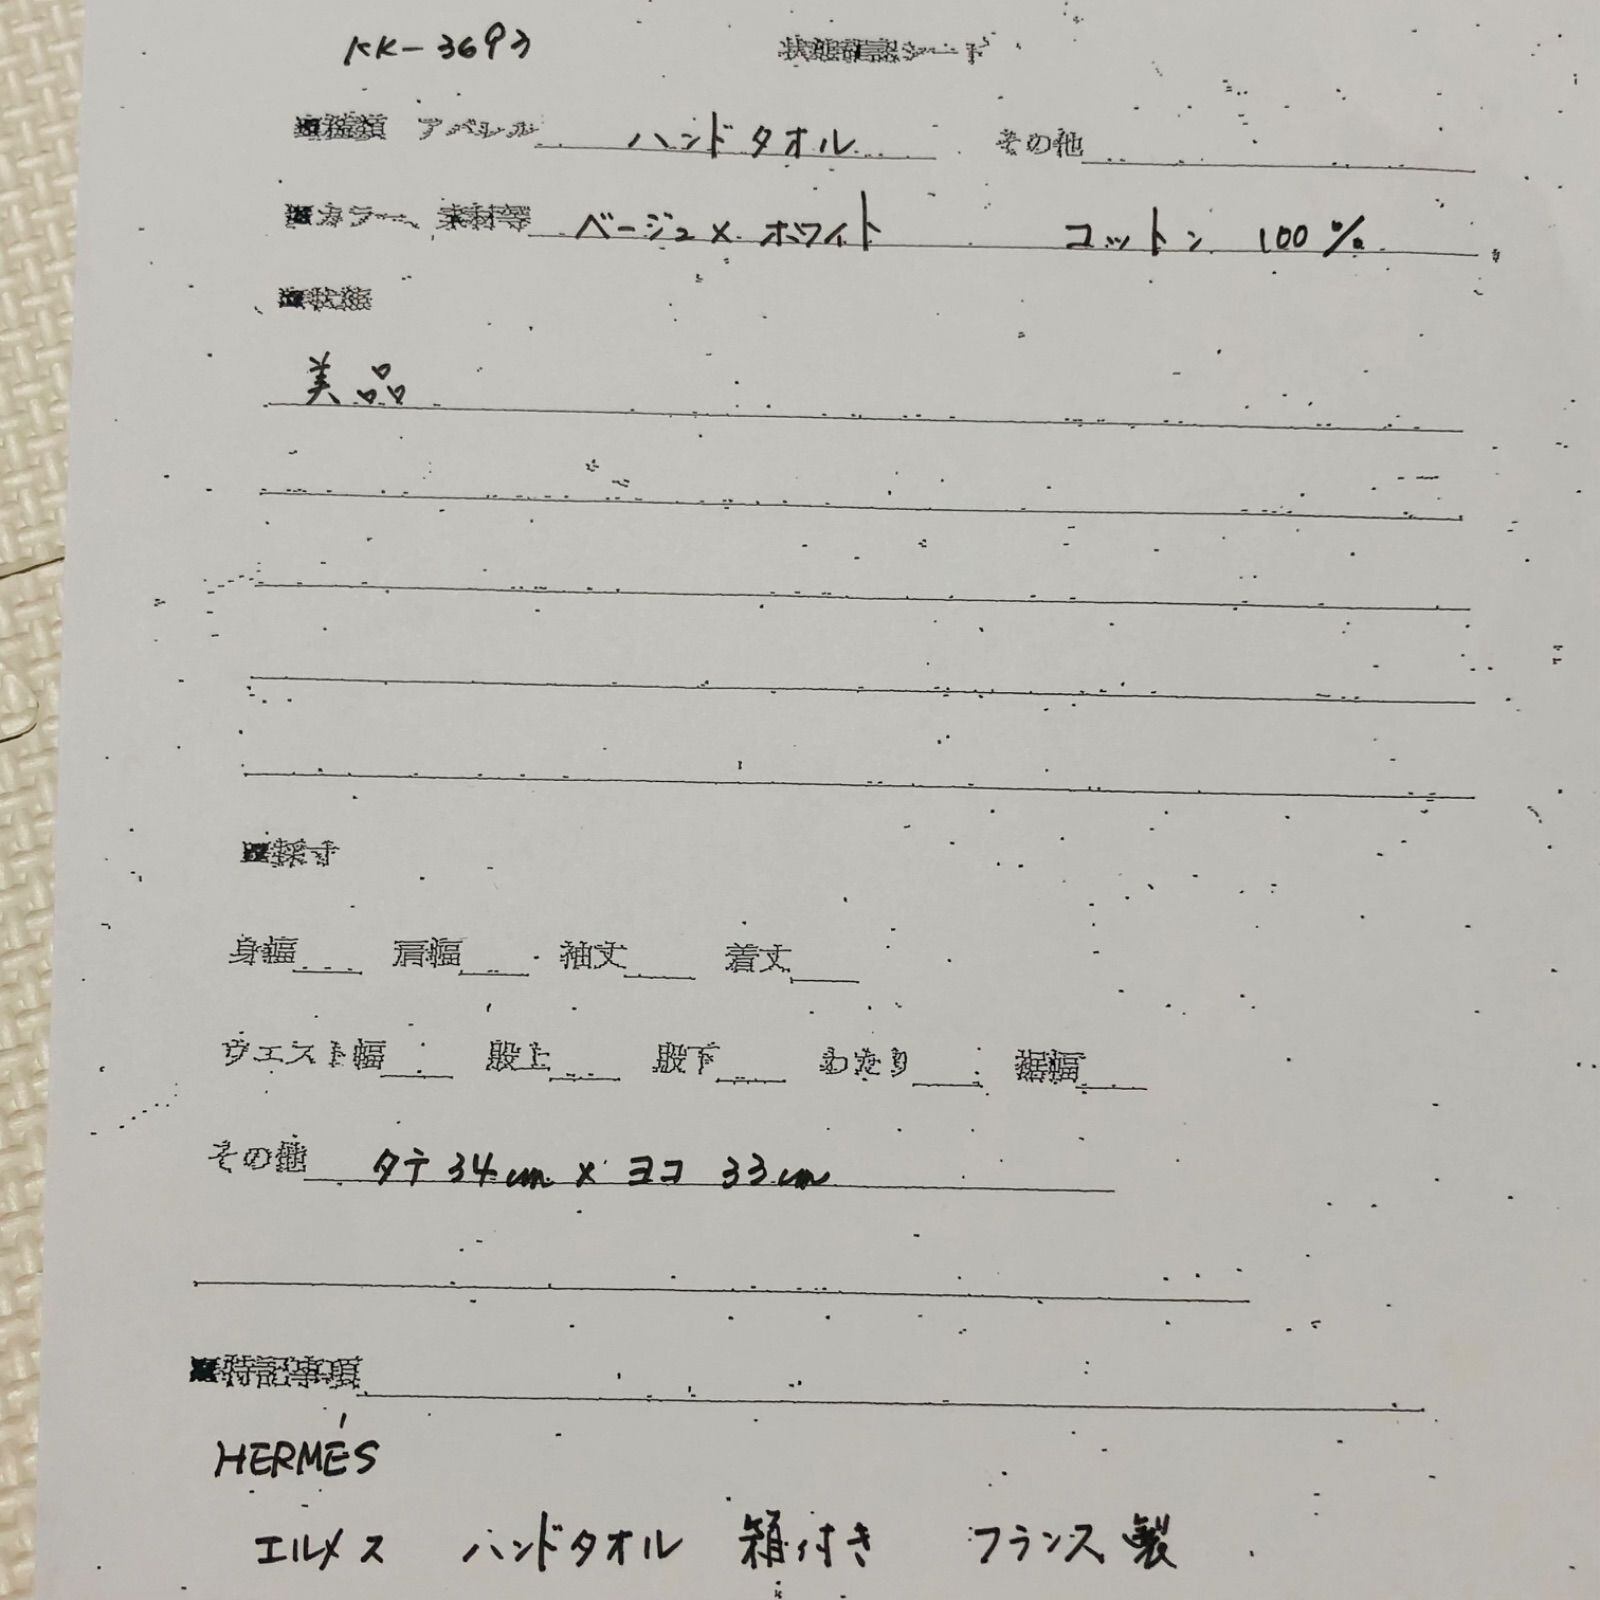 KK-3693 状態確認シート
■種類 アパレル ハンドタオル その他
■カラー、素材等 ベージュ×ホワイト コットン 100%
■状態
美品
■採寸
身幅 肩幅 袖丈 着丈
ウエスト幅 股上 股下 わたり 裾幅
その他 タテ34cm×ヨコ 33cm
■特記事項
HERMÉS
エルメス ハンドタオル 箱付き フランス製